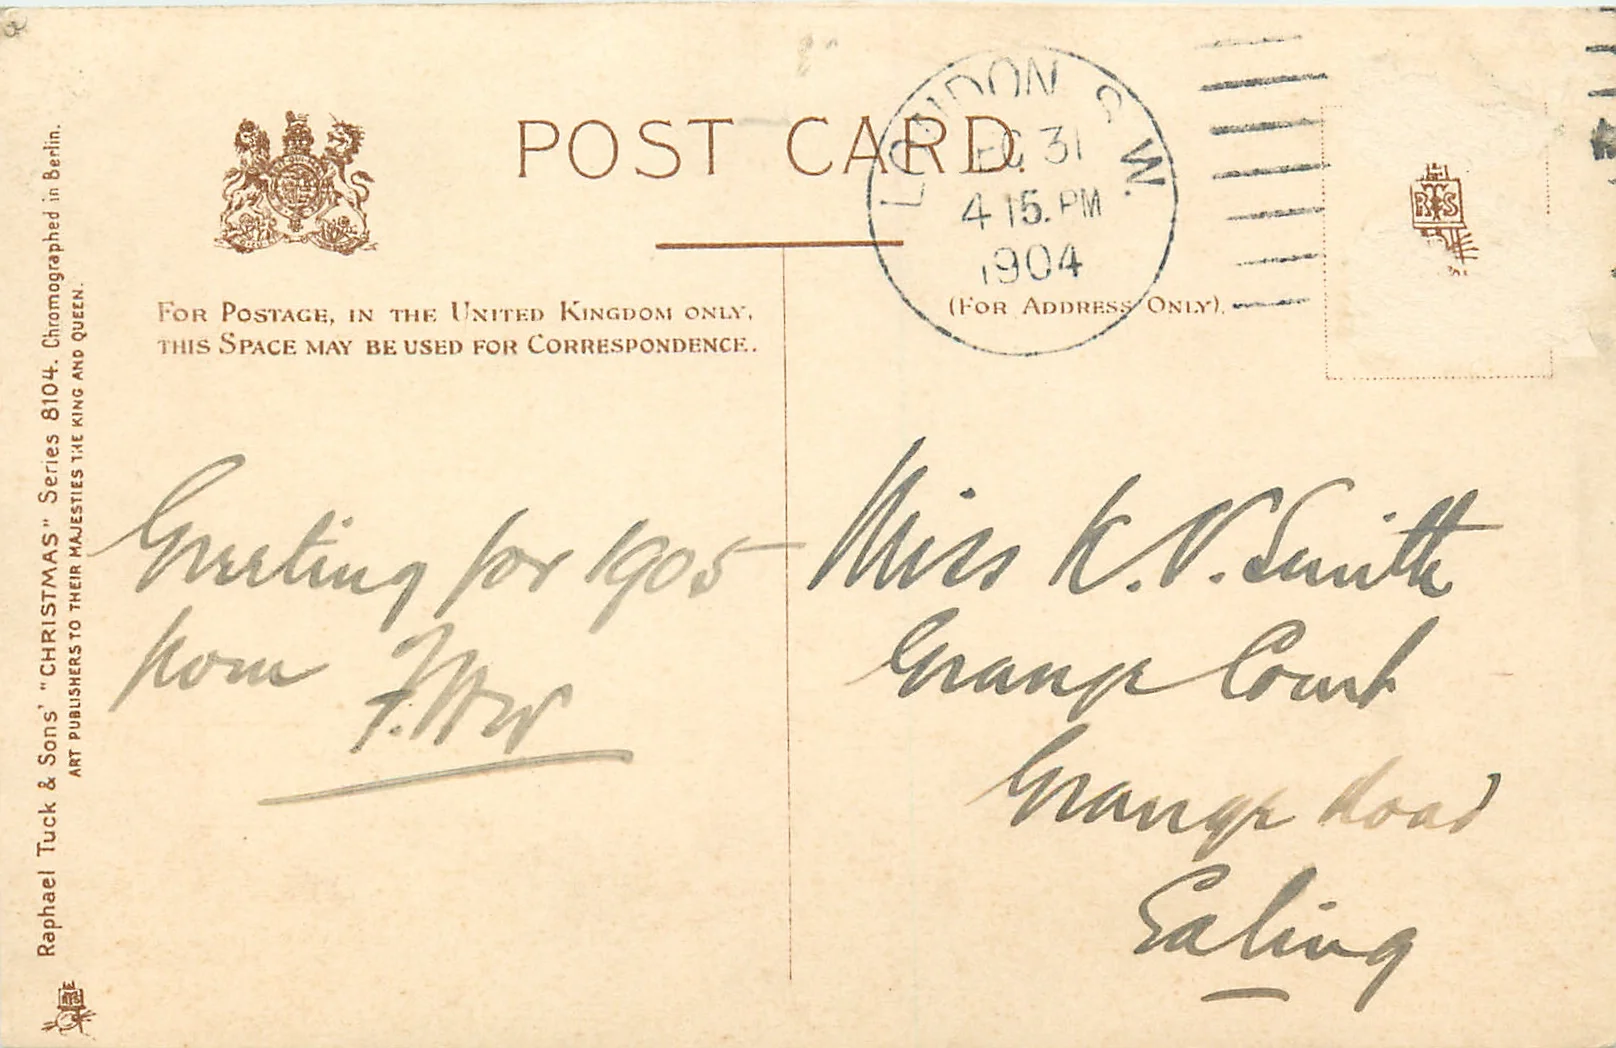 POST CARD.
LONDON S.W.
DEC 31
4 15. PM
1904
FOR POSTAGE, IN THE UNITED KINGDOM ONLY,
THIS SPACE MAY BE USED FOR CORRESPONDENCE.
(FOR ADDRESS ONLY).
Raphael Tuck & Sons' "CHRISTMAS" Series 8104. Chromographed in Berlin.
ART PUBLISHERS TO THEIR MAJESTIES THE KING AND QUEEN.
Greeting for 1905
from
Miss K. V. Smith
Grange Court
Grange Road
Ealing